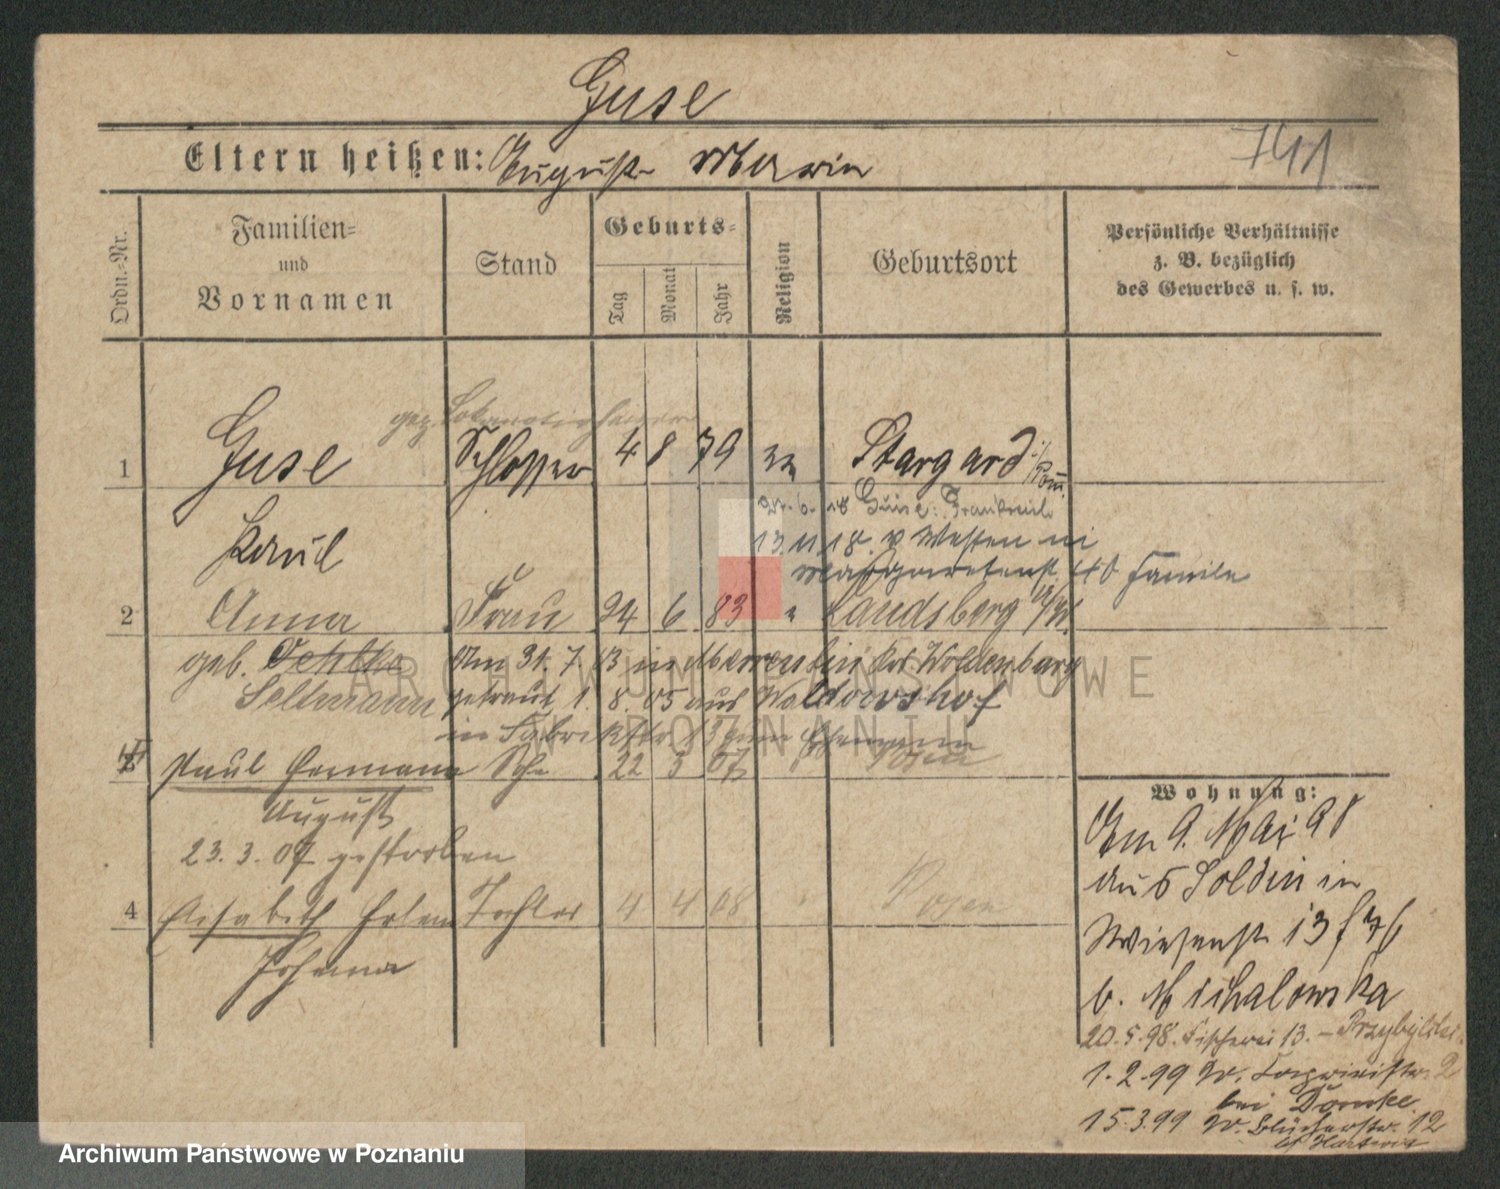 Guse
Eltern heißen: August Maria
741
Ordn.-Nr.
Familien-
und
Vornamen
Stand
Geburts-
Tag
Monat
Jahr
Religion
Geburtsort
Persönliche Verhältnisse
z. B. bezüglich
des Gewerbes u. s. w.
gez.
1 Guse Schlosser 4 8 79 Stargard i/Pom.
27.6.18 Guise: Frankreich
Paul 13.11.18. v Westen in
40 Familie
2 Anna Frau 24 6 83 " Landsberg a/W.
geb. Am 31. 7. 03 in Woldenberg
Seltmann getraut, 1. 8. 05 aus Waldowshof
in
3 Paul Hermann Sohn 22 3 07 Posen
August
23. 3. 07 gestorben
4 Elisabeth Helene Tochter 4 4 08 " Posen
Johanna
Wohnung:
Am 9. Mai 98
aus Soldin in
Wiesenstr 13
b. Michalowska
20.5.98. Fischerei 13. – Przybylski.
1.2.99 2
bei
15.3.99 Blücherstr. 12
b/ Hartwig
ARCHIWUM PAŃSTWOWE
W POZNANIU
Archiwum Państwowe w Poznaniu